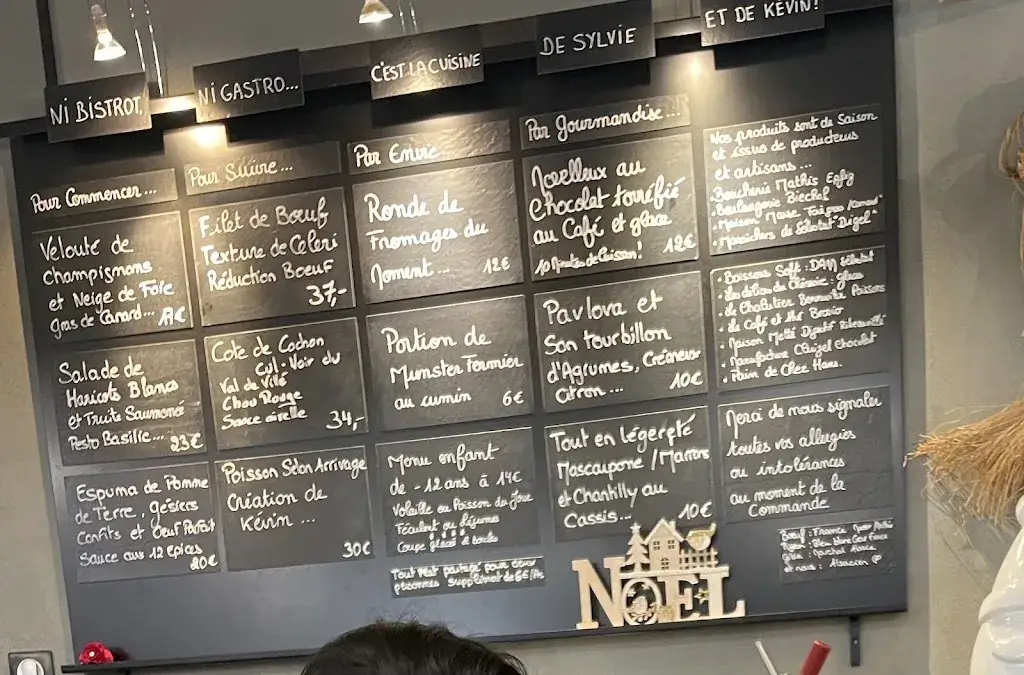 NI BISTROT,
NI GASTRO...
C'EST LA CUISINE
DE SYLVIE
ET DE KÉVIN!
Pour Commencer...
Velouté de
champignons
et Neige de Foie
gras de Canard...
Salade de
Haricots Blancs
et Truite Saumoné
Pesto Basilic... 23€
Espuma de Pomme
de Terre, gésiers
Confits et Oeuf Parfait
Sauce aux 12 épices
20€
Pour Suivre...
Filet de Bœuf
Texture de Céleri
Réduction Boeuf
37,-
Cote de Cochon
Cul-Noir du
Val de Villé
Chou Rouge
Sauce airelle 34,-
Poisson Selon Arrivage
Création de
Kévin ...
30€
Par Envie
Ronde de
Fromages du
Moment... 12€
Portion de
Munster Fermier
au cumin 6€
Menu enfant
de -12 ans à 14€
Volaille ou Poisson du Jour
Féculent ou légumes
Coupe glacée 2 boules
Tout Plat partagé pour deux
personnes supplément de 6€/As
Par Gourmandise...
Moelleux au
Chocolat torréfié
au Café et glace
10 Minutes de Cuisson! 12€
Pavlova et
Son tourbillon
d'Agrumes, Crémeux
Citron... 10€
Tout en légereté
Mascarpone / Marrons
et Chantilly au
Cassis... 10€
Nos produits sont de Saison
et issus de producteurs
et artisans...
• Boucherie Mathis Epfig
• Boulangerie Biechel
• Maison
• Maraichers de Sélestat "Digel"
• Boissons Soft: DAM Sélestat
• glaces
Poissons
• Café et thé
• Maison Metté Digestif Ribeauvillé
• Manufacture Chocolat
• Pain de Chez Hans.
Merci de nous signaler
toutes vos allergies
ou intolérances
au moment de la
Commande
Bœuf: France
NOEL